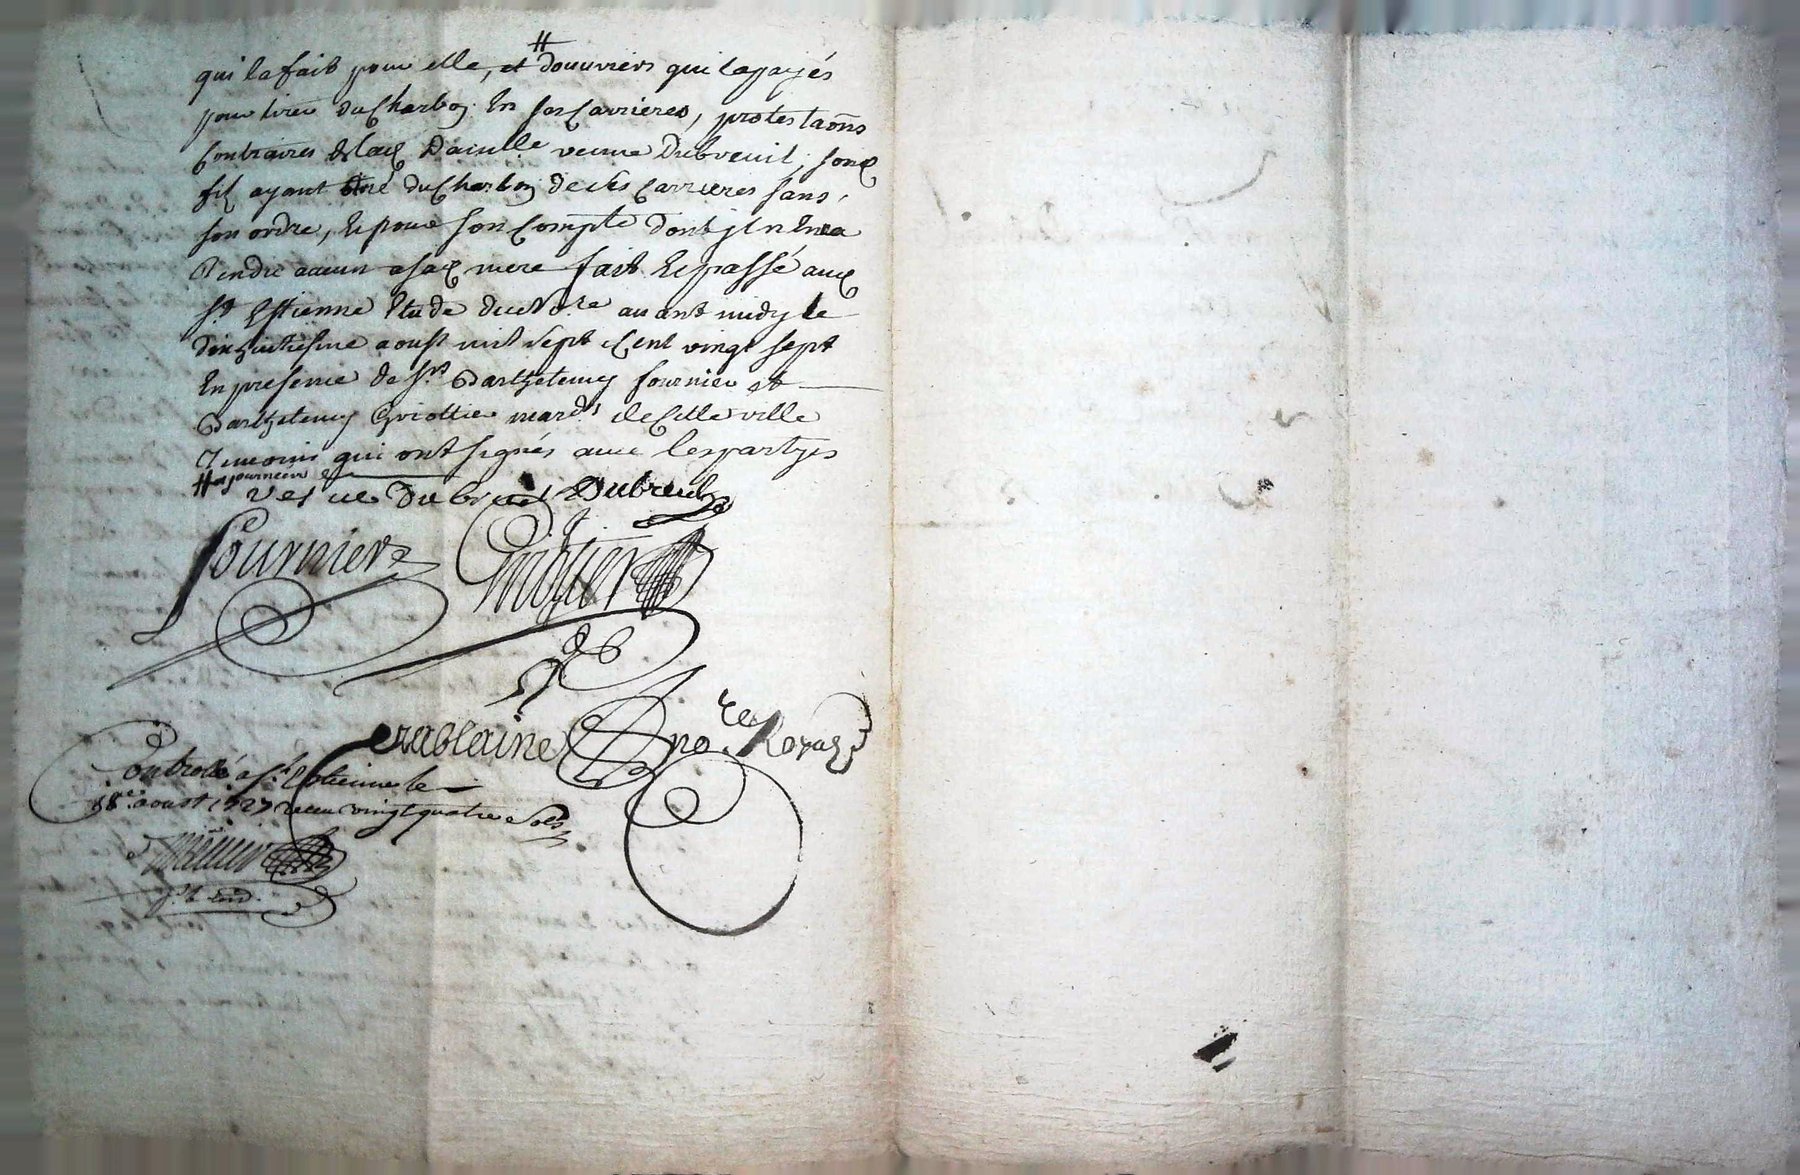 qui la fait pour elle, et # douuriers qui la payés
pour tirer du Charbon En ses Carrieres, protestaõns
Contraires de lad Damelle veuue Dubreuil, sond
fil ayant tiré du Charbon de ses Carrieres sans
son ordre, Et pour son Compte dont jl n En a
Rendu aucun a sad mere fait Et passé aud
St Estienne Etude dud Nore auant midy le
dixhuitiesme aoust mil sept Cent vingt sept
En presence de srs Barthelemy fournier et
Barthelemy Griottier mards de Cette ville
Temoins qui ont signés auec les partyes
# journées
vef ue Dubreuil Dubreuil
fournier Griotier
crablaine nore Royal
Controllé a St Estienne le
18e aoust 1727 receu vingt quatre sols